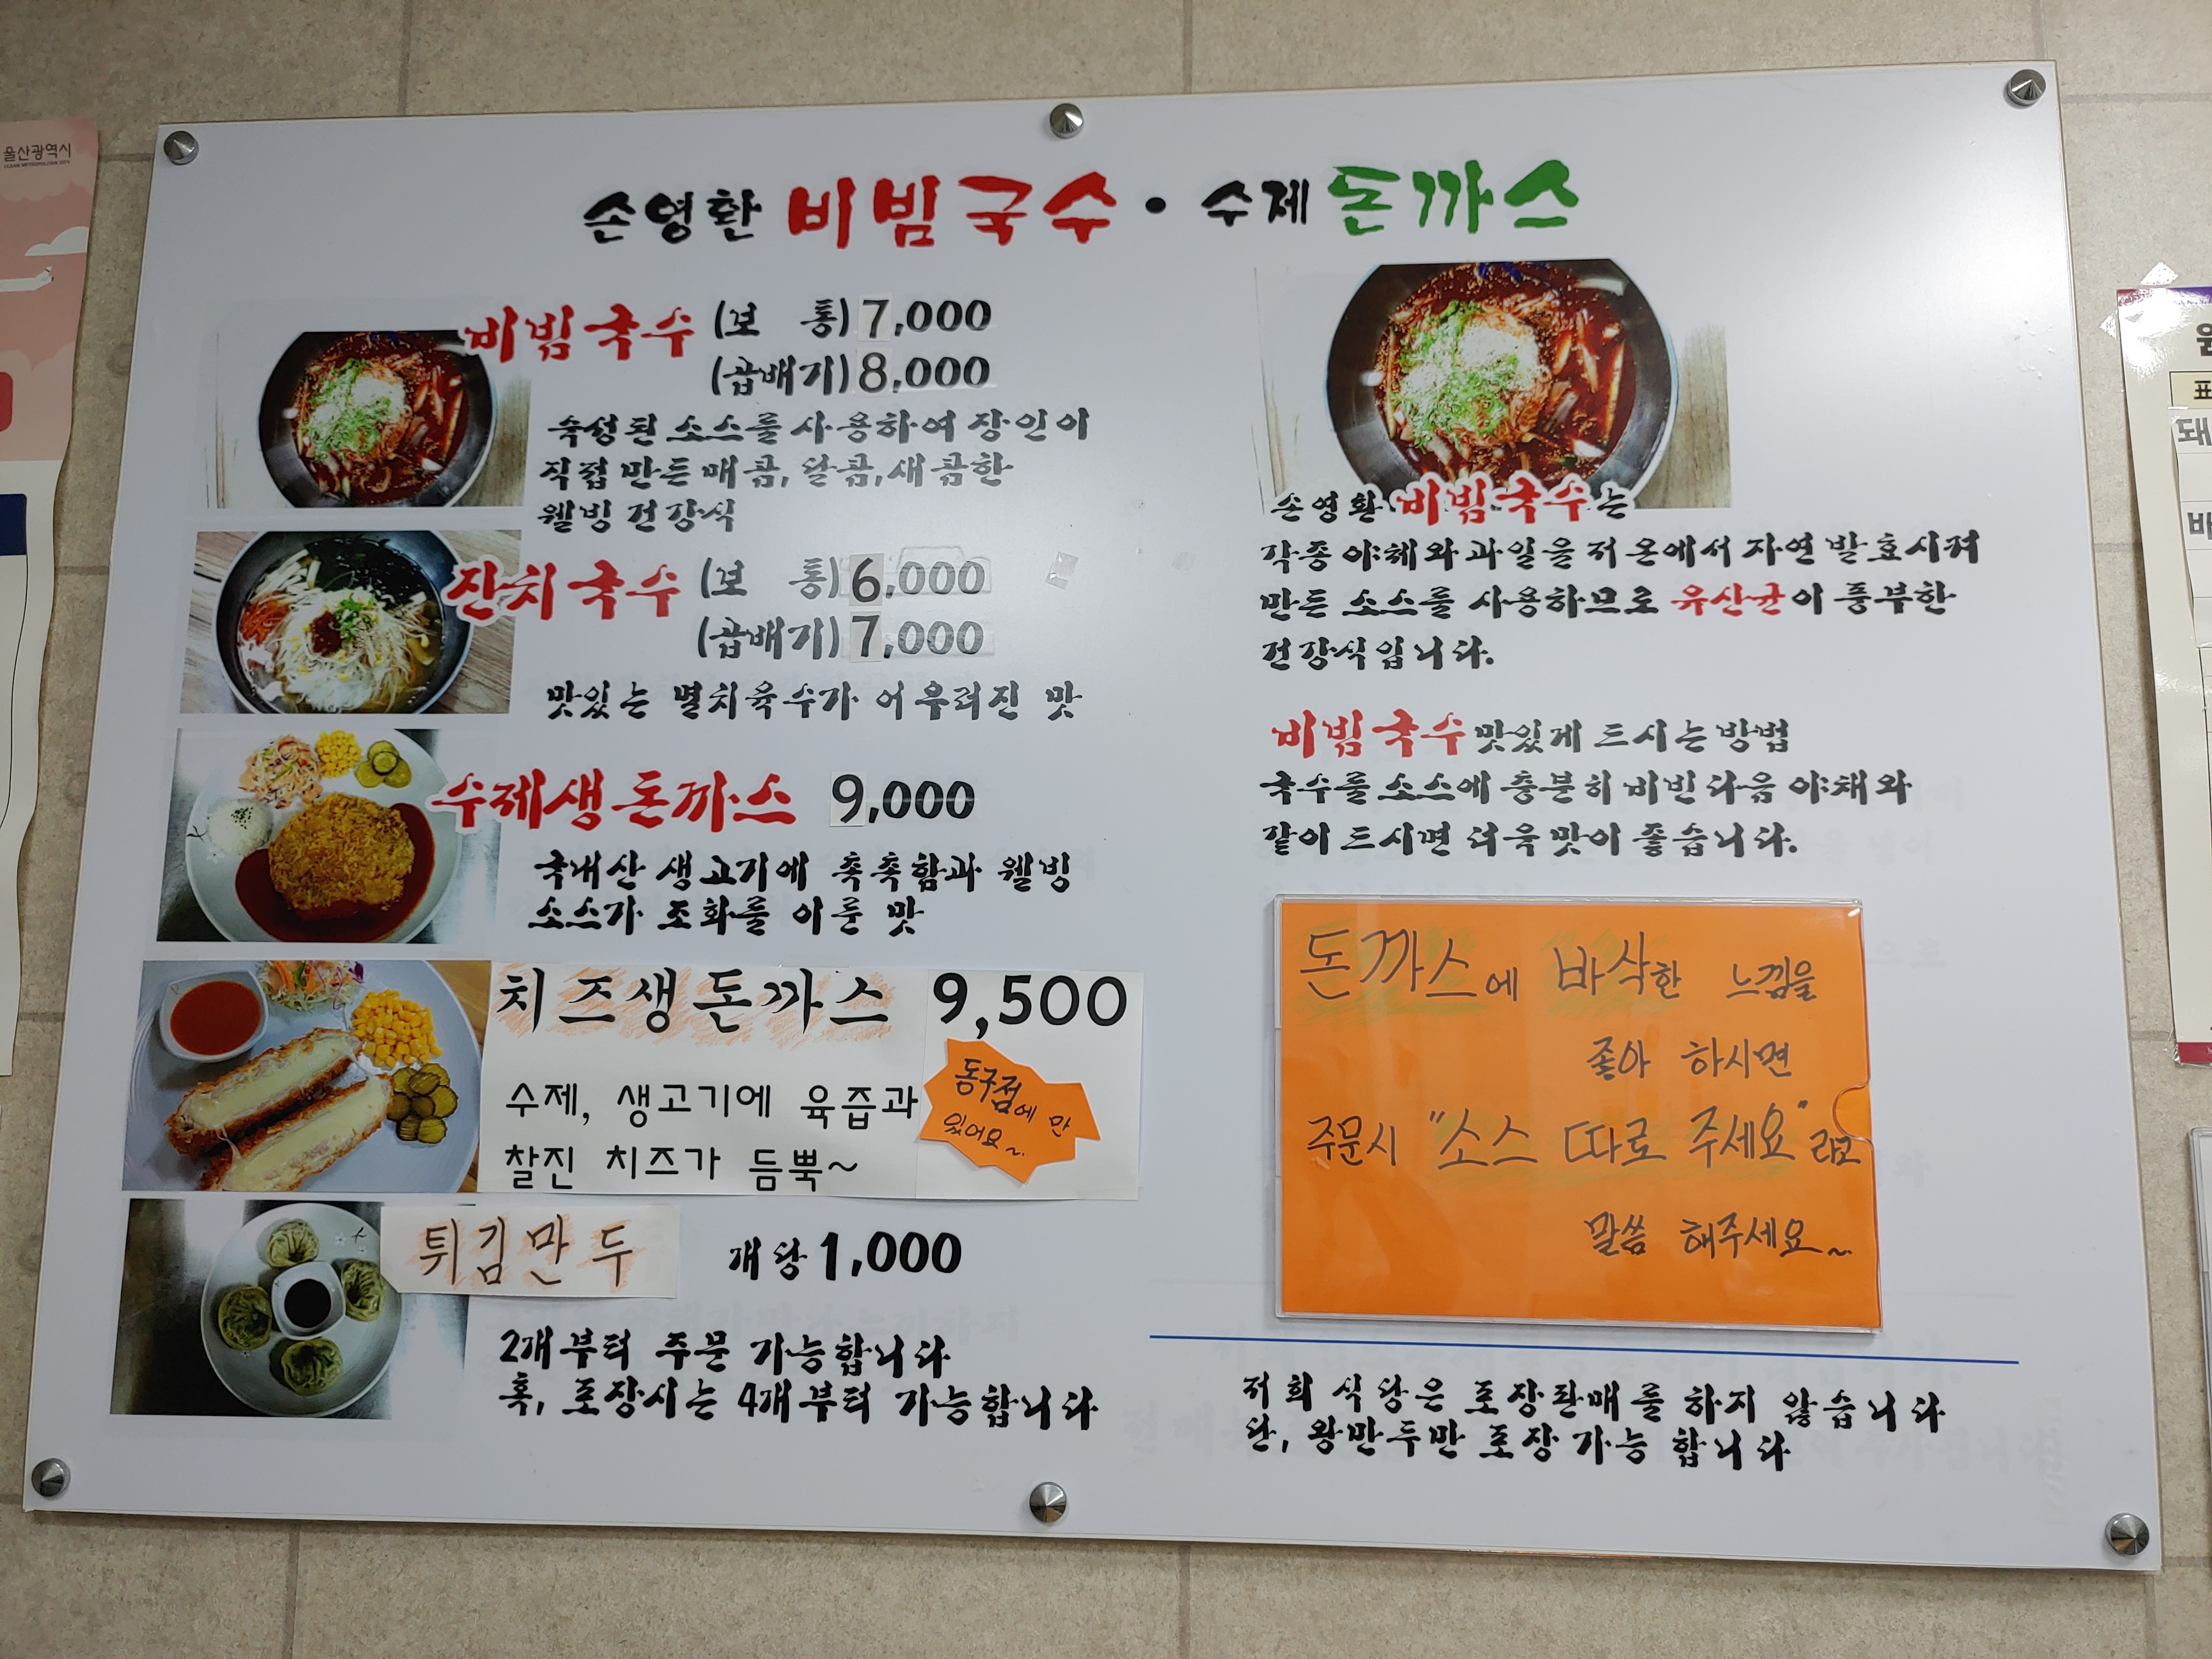 울산광역시
ULSAN METROPOLITAN CITY
손영환 비빔국수 · 수제 돈까스
비빔국수 (보 통) 7,000
(곱배기) 8,000
숙성된 소스를 사용하여 장인이
직접 만든 매콤, 달콤, 새콤한
웰빙 건강식
잔치국수 (보 통) 6,000
(곱배기) 7,000
맛있는 멸치육수가 어우러진 맛
수제생돈까스 9,000
국내산 생고기에 촉촉함과 웰빙
소스가 조화를 이룬 맛
치즈생돈까스 9,500
수제, 생고기에 육즙과
찰진 치즈가 듬뿍~
동구점에 만
있어요~
튀김만두 개당 1,000
2개부터 주문 가능합니다
혹, 포장시는 4개부터 가능합니다
손영환 비빔국수는
각종 야채와 과일을 저온에서 자연 발효시켜
만든 소스를 사용하므로 유산균이 풍부한
건강식입니다.
비빔국수 맛있게 드시는 방법
국수를 소스에 충분히 비빈 다음 야채와
같이 드시면 더욱 맛이 좋습니다.
돈까스에 바삭한 느낌을
좋아 하시면
주문시 "소스 따로 주세요"라고
말씀 해주세요~
저희 식당은 포장판매를 하지 않습니다
단, 왕만두만 포장 가능 합니다
표
돼
배